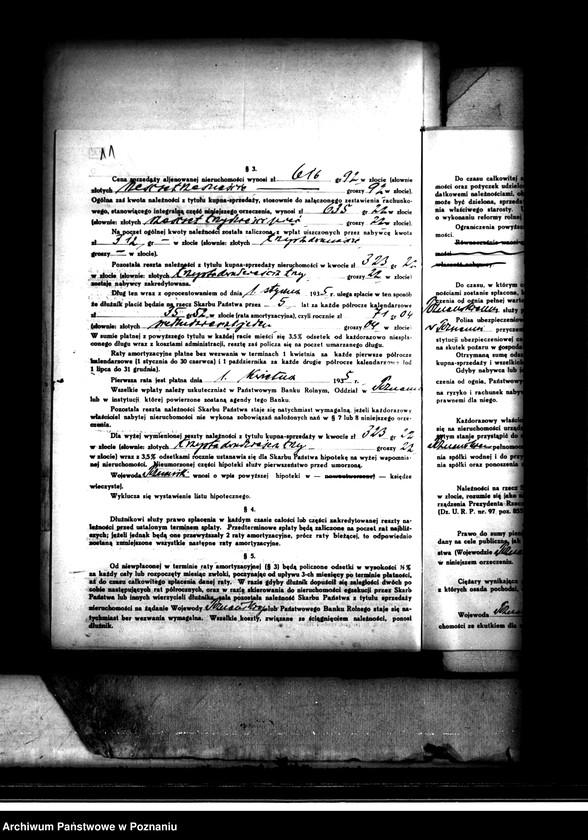 § 3.
Cena sprzedaży aljenowanej nieruchomości wynosi zł 616 gr 92 w złocie (słownie
złotych groszy 92 w złocie).
Ogólna zaś kwota należności z tytułu kupna-sprzedaży, stosownie do załączonego zestawienia rachunko-
wego, stanowiącego integralną część niniejszego orzeczenia, wynosi zł 635 gr 22 w złocie
(słownie: złotych groszy 22 w złocie).
Na poczet ogólnej kwoty należności została zaliczona z wpłat uiszczonych przez nabywcę kwota
zł 312 gr — w złocie (słownie: złotych
groszy — w złocie).
Pozostała reszta należności z tytułu kupna-sprzedaży w kwocie zł 323 gr 22
w złocie (słownie: złotych groszy 22 w złocie)
zostaje nabywcy zakredytowana.
Dług ten wraz z oprocentowaniem od dnia 1 stycznia 1935 r. ulega spłacie w ten sposób
że dłużnik płacić będzie na rzecz Skarbu Państwa przez 5 lat za każde półrocze kalendarzowe
zł 35 gr 52 w złocie (rata amortyzacyjna), czyli rocznie zł 71 gr 04
(słownie: złotych siedemdziesiąt jeden groszy 04 w złocie).
W sumie płatnej z powyższego tytułu w każdej racie mieści się 3,5% odsetek od każdorazowo niespła-
conego długu wraz z kosztami administracji, resztę zaś policza się na poczet umarzanego długu.
Raty amortyzacyjne płatne bez wezwania w terminach 1 kwietnia za każde pierwsze półrocze
kalendarzowe (1 stycznia do 30 czerwca) i 1 października za każde drugie półrocze kalendarzowe (od
1 lipca do 31 grudnia).
Pierwsza rata jest płatna dnia 1 kwietnia 1935 r.
Wszelkie wpłaty należy uskuteczniać w Państwowym Banku Rolnym, Oddział w Poznaniu
lub w instytucji której powierzone zostaną agendy tego Banku.
Pozostała reszta należności Skarbu Państwa staje się natychmiast wymagalną, jeżeli każdorazowy
właściciel nabytej nieruchomości nie wykona zobowiązań nałożonych nań w § 7 lub 8 niniejszego orze-
czenia.
Dla wyżej wymienionej reszty należności z tytułu kupna-sprzedaży w kwocie zł 323 gr 22
w złocie (słownie: złotych groszy 22
w złocie) wraz z 3,5% odsetkami rocznie ustanawia się dla Skarbu Państwa hipotekę na wyżej wspomnia-
nej nieruchomości. Nieumorzonej części hipoteki służy pierwszeństwo przed umorzoną.
Wojewoda wnosi o wpis powyższej hipoteki w — — księdze
wieczystej.
Wyklucza się wystawienie listu hipotecznego.
§ 4.
Dłużnikowi służy prawo spłacenia w każdym czasie całości lub części zakredytowanej reszty na-
leżności przed ustalonemi terminem spłaty. Przedterminowe spłaty będą zaliczone na poczet rat najbliż-
szych; jeżeli jednak one przewyższały 2 raty amortyzacyjne, prócz raty bieżącej, to odpowiednio
zostaną zmniejszone wszystkie następne raty amortyzacyjne.
§ 5.
Od niewpłaconej w terminie raty amortyzacyjnej (§ 3) będą policzone odsetki w wysokości ½%
za każdy cały lub rozpoczęty miesiąc zwłoki, poczynając od upływu 3-ch miesięcy po terminie płatności,
aż do czasu całkowitego spłacenia danej raty. W razie gdyby dłużnik dopuścił się zaległości dwóch po
sobie następujących rat półrocznych, oraz w razie skierowania do nieruchomości egzekucji przez Skarb
Państwa lub innych wierzycieli dłużnika, cała pozostała należność Skarbu Państwa z tytułu sprzedaży
nieruchomości na żądanie Wojewody lub Państwowego Banku Rolnego staje się na-
tychmiast bez wezwania wymagalna. Wszelkie koszty, związane ze ściągnięciem należności, ponosi
dłużnik.
Do czasu całkowitej
mości oraz pożyczek udzielo
datkowemi należnościami, ob
może być dzielona, sprzeda
nia właściwego starosty.
o wykonaniu reformy rolnej
Ograniczenia powyż
mości.
Do czasu, w którym
nościami zostanie spłacona,
czenia od ognia pełnej warto
służy p
w Poznaniu przyczem
stytucji ubezpieczeniowej
na skutek pożaru w gospoda
Otrzymaną sumę odszk
kupna-sprzedaży i wszelkich
Gdyby nabywca lub
czenia od ognia, Państwowy
na ryzyko i rachunek nabyw
prawnemi dla niego.
Każdorazowy właści
się na nieruchomości urząd
rym stanie przystąpić do s
pełnomoc
nia spółki wodnej i do prz
nia spółki oraz ponoszenia
Należności na rzecz
w złocie, rozumie się jako
rządzenia Prezydenta Rzecz
(Dz. U. R. P. nr. 97 poz. 855
Prawo do sumy pieni
dany na cele publiczne,
stwa (Wojewodzie
w niniejszem orzeczeniu.
Ciężary wynikające
z których osada pochodzi,
Wojewoda
chomości ze skutkiem dla
Archiwum Państwowe w Poznaniu